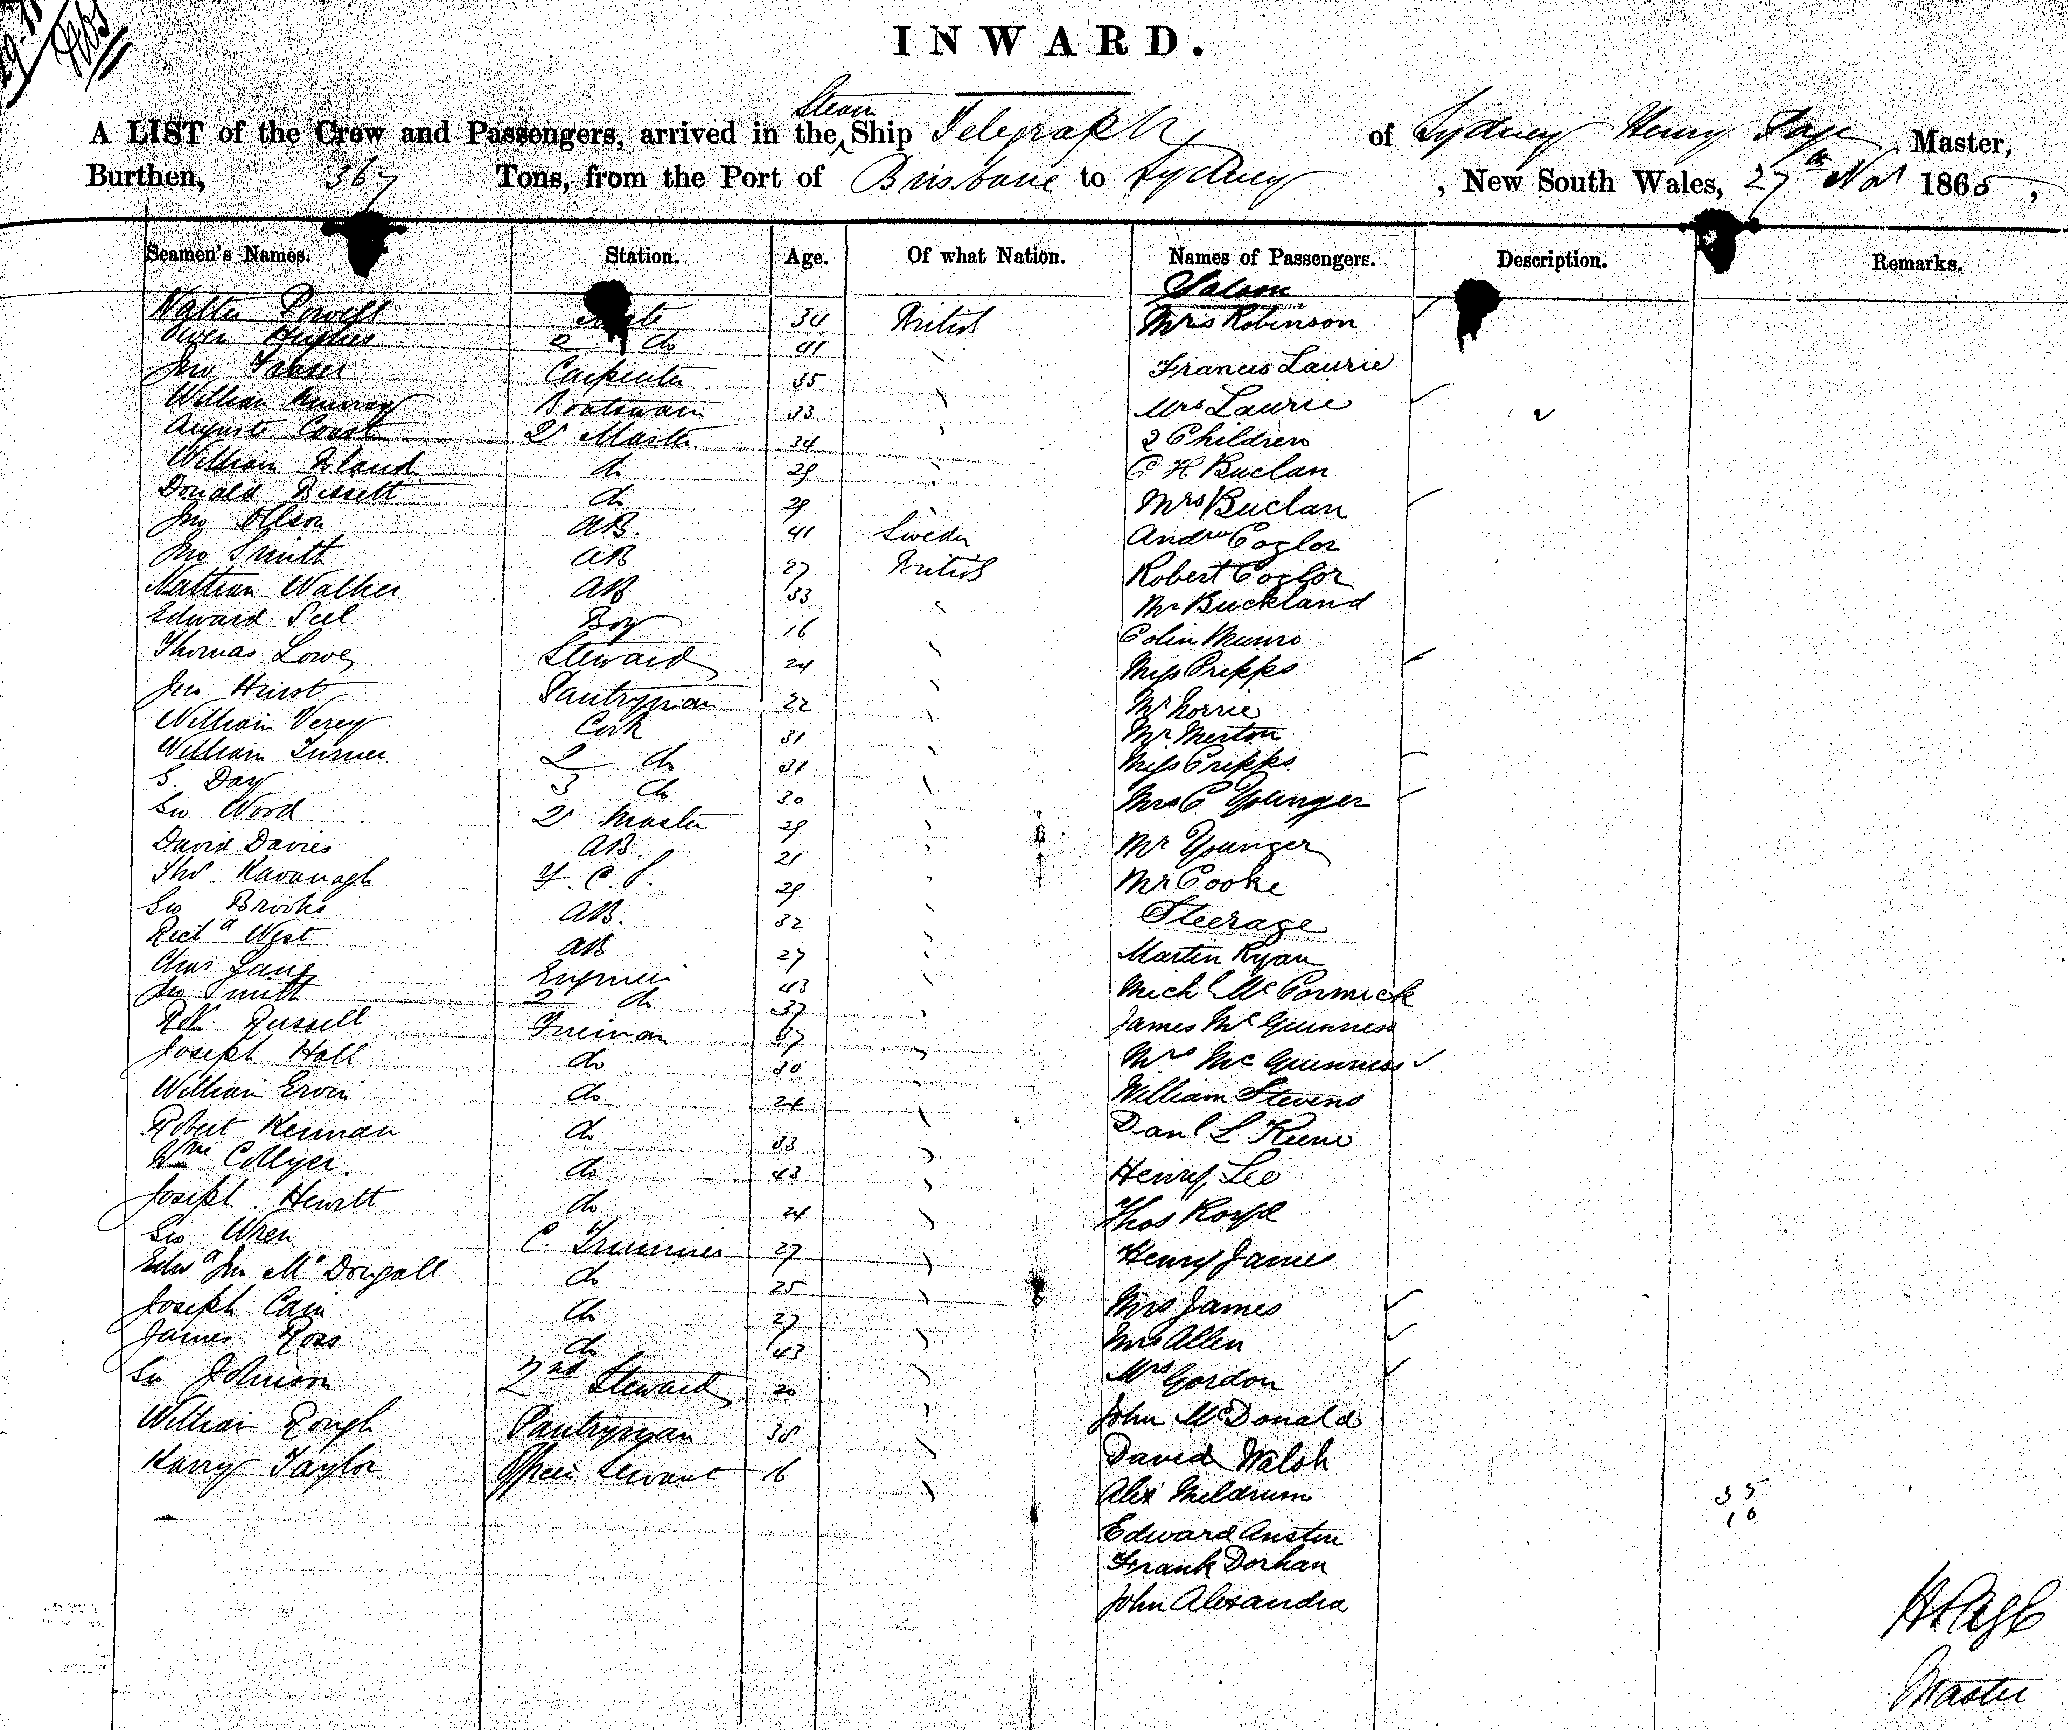 INWARD.
A LIST of the Crew and Passengers, arrived in the Steam Ship Telegraph of Sydney Henry Page Master,
Burthen, 367 Tons, from the Port of Brisbane to Sydney, New South Wales, 27th Nov 1865,
Seamen's Names. Station. Age. Of what Nation. Names of Passengers. Description. Remarks.
Saloon
Walter Powell 34 British Mrs Robinson
Owen Hughes 2 do 41
Jno Fraser Carpenter 35 Francis Laurie
William Murray Boatswain 33 Mrs Laurie
August Coast Qr Master 34 2 Children
William Bland do 29 C H Buclan
Donald Bissett do 29 Mrs Buclan
Jno Ollson AB. 41 Sweden Andrw Coglor
Jno Smith AB 27 British Robert Coglor
Nathan Walker AB 33 Mr Buckland
Edward Peel Boy 16 Colin Munro
Thomas Lowe Steward 24 Miss Cripps
Jno Hurst Pantryman 22 Mr Lorrie
William Verey Cook 31 Mr Merton
William Turner 2 do 31 Miss Cripps
S. Day 3 do 30 Mrs C Younger
Geo Wood Qr Master 29
David Davies AB. 21 Mr Younger
Thos Kavanagh 29 Mr Cooke
Geo Brooks AB. 32 Steerage
Richd West AB 27 Martin Ryan
Chas Lang Engineer 43 Michl McCormick
Jno Smith 2 do 37
Robt Russell Fireman 37 James McGuinness
Joseph Hall do 30 Mrs McGuinness
William Ervin do 24 William Stevens
Robert Kernan do 33 Danl L Keene
Wm Collyer do 43 Henry Lee
Joseph Hewitt do 24 Thos Korpe
Geo Wren C Trimmer 27 Henry James
Edwd Jno McDougall do 25
Joseph Cain do 27 Mrs James
James Ross do 43 Mrs Allen
Geo Johnson 2nd Steward 20 Mrs Gordon
William Rough Pantryman 38 John McDonald
Harry Taylor Officers Servant 16 David Walsh
Alex Meldrum
35
16
Edward Austin
Frank Dorhan
John Alexandra
H Page
Master